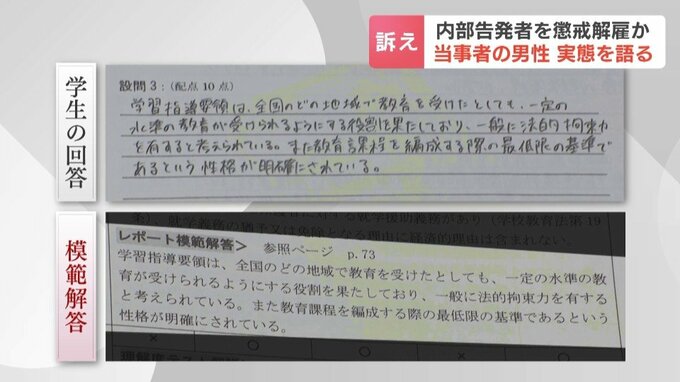 訴え
内部告発者を懲戒解雇か
当事者の男性 実態を語る
学生の回答
設問3：(配点10点)
学習指導要領は、全国のどの地域で教育を受けたとしても、一定の
水準の教育が受けられるようにする役割を果たしており、一般に法的拘束力
を有すると考えられている。また教育課程を編成する際の最低限の基準で
あるという性格が明確にされている。
模範解答
就学義務の猶予又は免除となる理由に経済的理由は含まれない。
レポート模範解答＞ 参照ページ p.73
学習指導要領は、全国のどの地域で教育を受けたとしても、一定の水準の教
育が受けられるようにする役割を果たしており、一般に法的拘束力を有する
と考えられている。また教育課程を編成する際の最低限の基準であるという
性格が明確にされている。